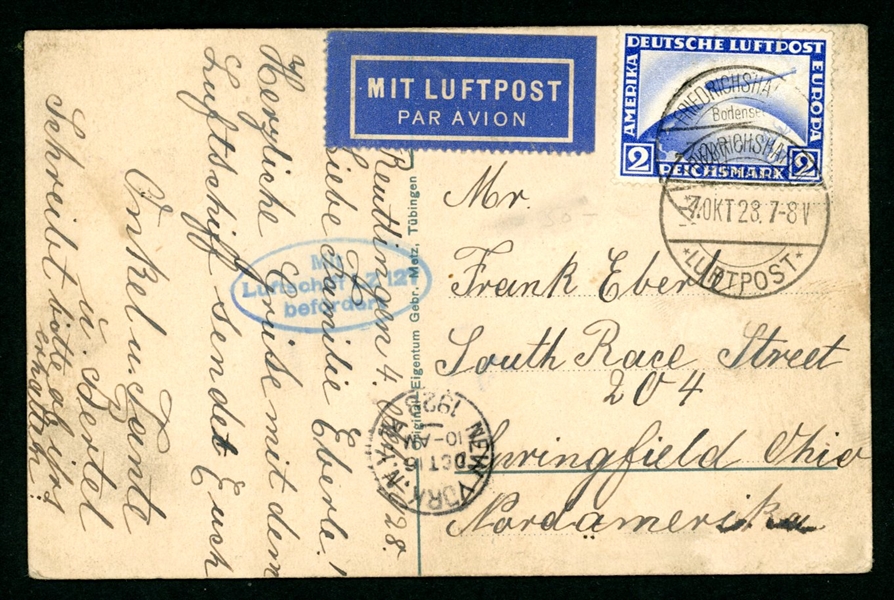 MIT LUFTPOST
PAR AVION
DEUTSCHE LUFTPOST
AMERIKA
EUROPA
2 REICHSMARK 2
FRIEDRICHSHA
Bodensee
FRIEDRICHSHA
4.OKT 28. 7-8 V
*LUFTPOST*
Mr.
Frank Eberle
South Race Street
204
Springfield Ohio
Nordamerika
Original-Eigentum Gebr. Metz, Tübingen
Mit
Luftschiff LZ 127
befördert
NEW YORK, N.Y.
OCT 16
10-AM
1928
Reutlingen 4. Okt. 28.
Liebe Familie Eberle!
Herzliche Grüße mit dem
Luftschiff sendet Euch
Onkel u. Tante
u. Bertel
Schreibt bitte ob ihrs
erhalten!